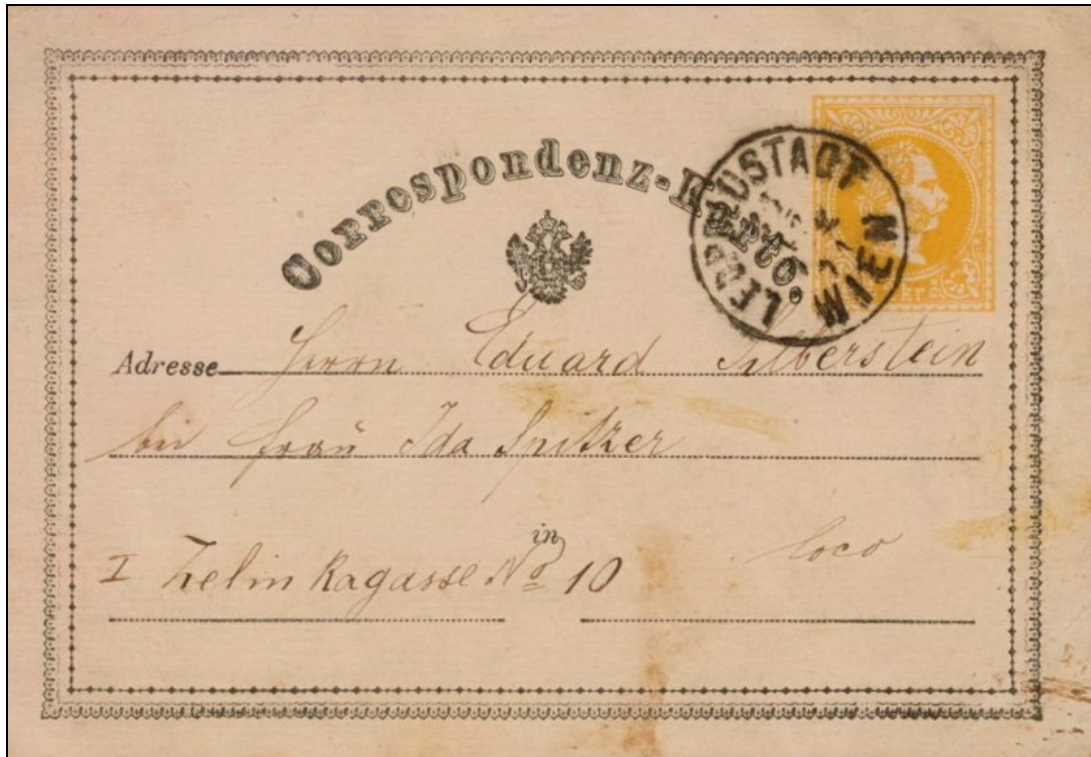 Correspondenz-Karte.
LEOPOLDSTADT
WIEN
kr
Adresse Herrn Eduard Silberstein
bei Frau Ida Spitzer
in
I Zelinkagasse No 10 loco